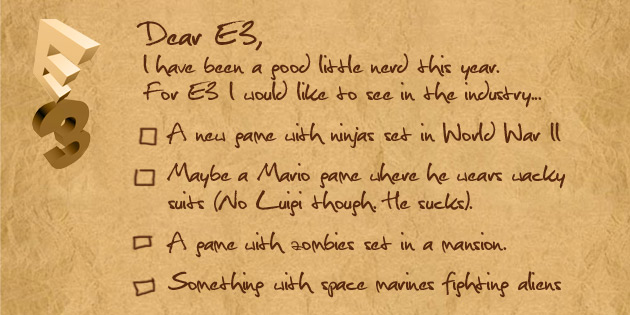 E3
Dear E3,
I have been a good little nerd this year.
For E3 I would like to see in the industry...
A new game with ninjas set in World War II
Maybe a Mario game where he wears wacky
suits (No Luigi though. He sucks).
A game with zombies set in a mansion.
Something with space marines fighting aliens